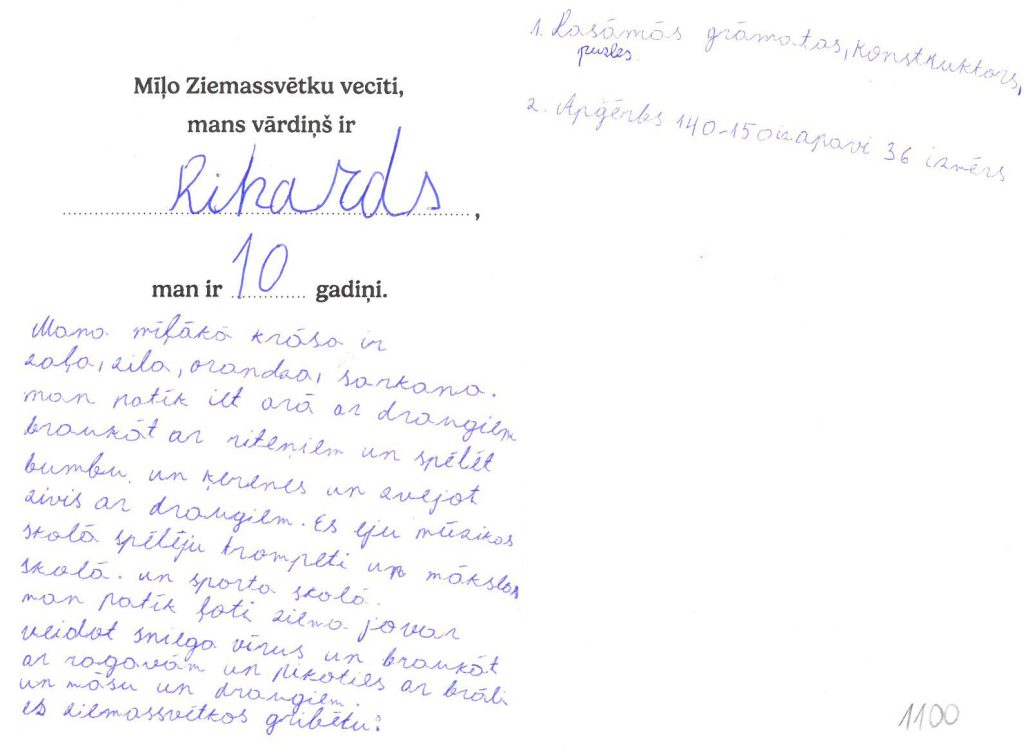 Mīļo Ziemassvētku vecīti,
mans vārdiņš ir
Rihards,
man ir 10 gadiņi.
Mana mīļākā krāsa ir
zaļa, zila, orandza, sarkana.
man patīk iet ārā ar draugiem
braukāt ar riteņiem un spēlēt
bumbu un ķerenes un zvejot
zivis ar draugiem. Es eju mūzikas
skolā spēlēju trompeti un mākslas
skolā. un sporta skolā.
man patīk ļoti ziema jo var
veidot sniega vīrus un braukāt
ar ragavām un pikoties ar brāli
un māsu un draugiem.
es ziemassvētkos gribētu:
1. Lasāmās grāmatas, konstruktors,
puzles.
2. Apģērbs 140-150 iz. apavi 36 izmērs
1100